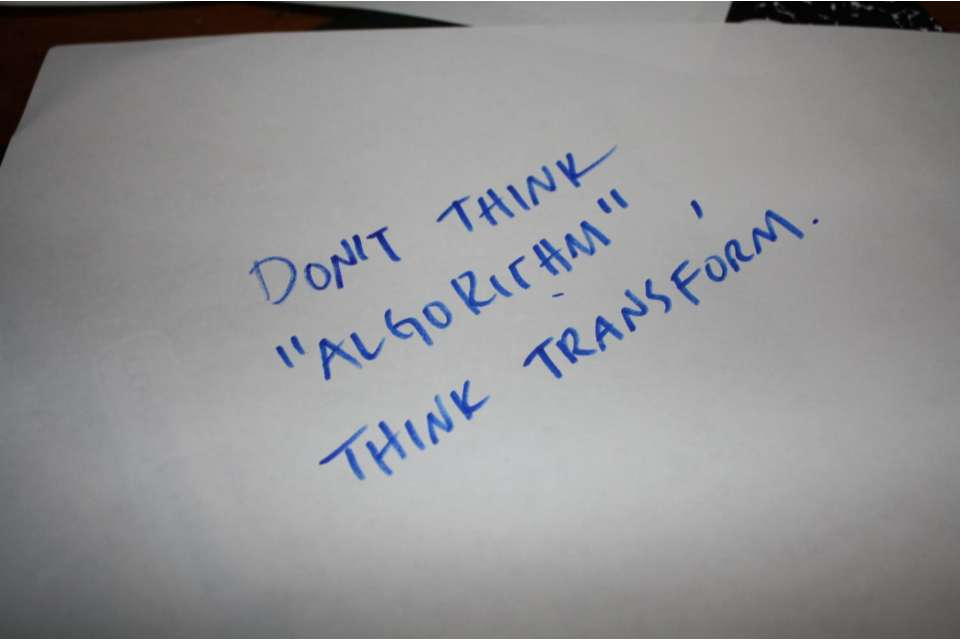 DON'T THINK
"ALGORITHM"
THINK TRANSFORM.